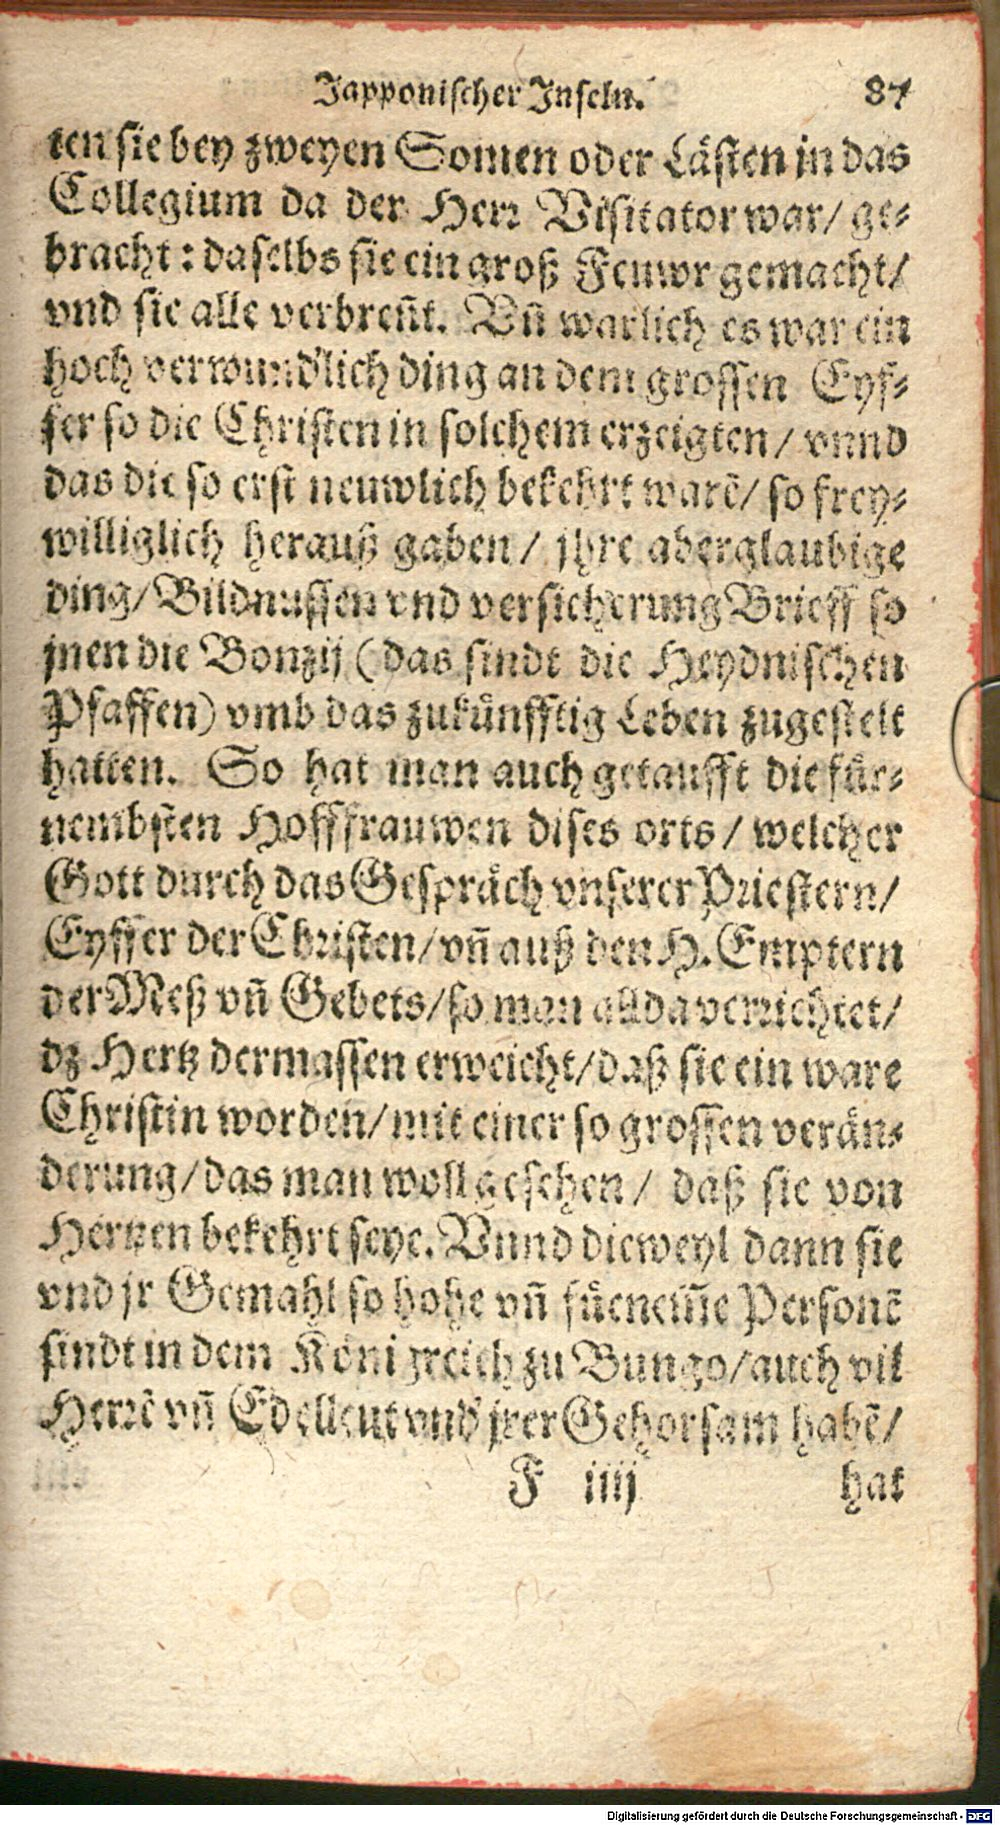 Japponischer Inseln. 87
ten sie bey zweyen Somen oder Lästen in das
Collegium da der Herr Visitator war/ ge⸗
bracht: daselbs sie ein groß Feuwr gemacht/
vnd sie alle verbreñt. Vñ warlich es war ein
hoch verwundlich ding an dem grossen Eyf⸗
fer so die Christen in solchem erzeigten/ vnnd
das die so erst neuwlich bekehrt warē/ so frey⸗
williglich herauß gaben/ jhre aberglaubige
ding/ Bildnussen vnd versicherung Brieff so
jnen die Bonzij (das sindt die Heydnischen
Pfaffen) vmb das zukünfftig Leben zugestelt
hatten. So hat man auch getaufft die für⸗
nembsten Hofffrauwen dises orts/ welcher
Gott durch das Gespräch vnserer Priestern/
Eyffer der Christen/ vñ auß den H. Emptern
der Meß vñ Gebets/ so man allda verrichtet/
dz Hertz dermassen erweicht/ daß sie ein ware
Christin worden/ mit einer so grossen verän⸗
derung/ das man woll gesehen/ daß sie von
Hertzen bekehrt seye. Vnnd dieweyl dann sie
vnd jr Gemahl so hohe vñ füenem̃e Personē
sindt in dem Königreich zu Bungo/ auch vil
Herrē vñ Edelleut vnd jrer Gehorsam habē/
F iiij hat
Digitalisierung gefördert durch die Deutsche Forschungsgemeinschaft - DFG